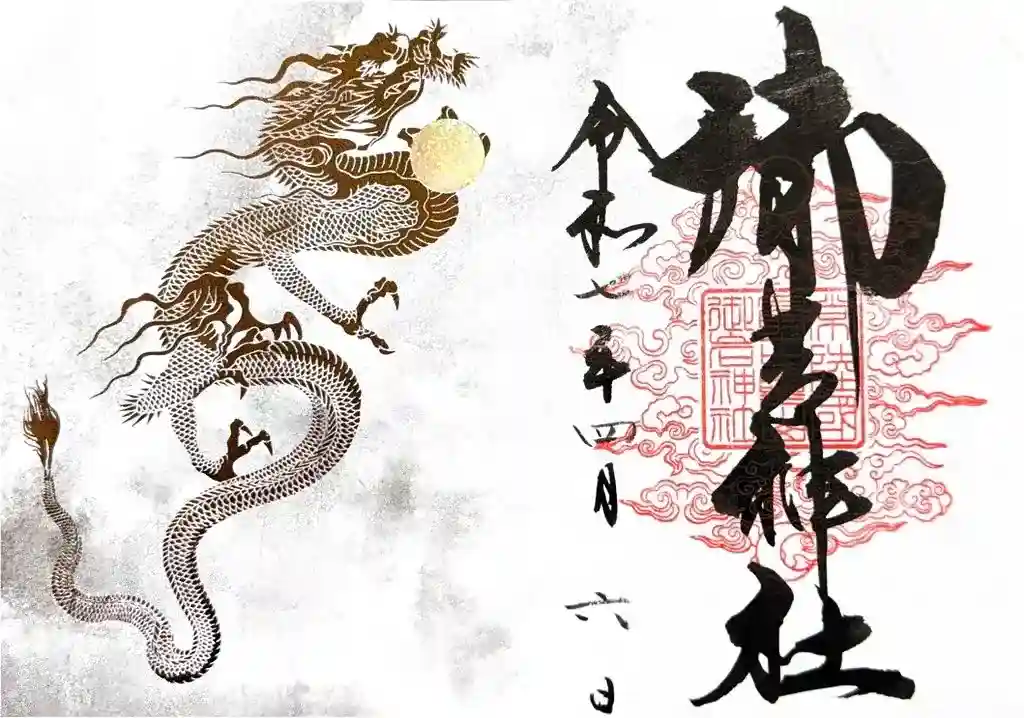 御岩神社
令和七年四月六日
常陸國
御岩神社